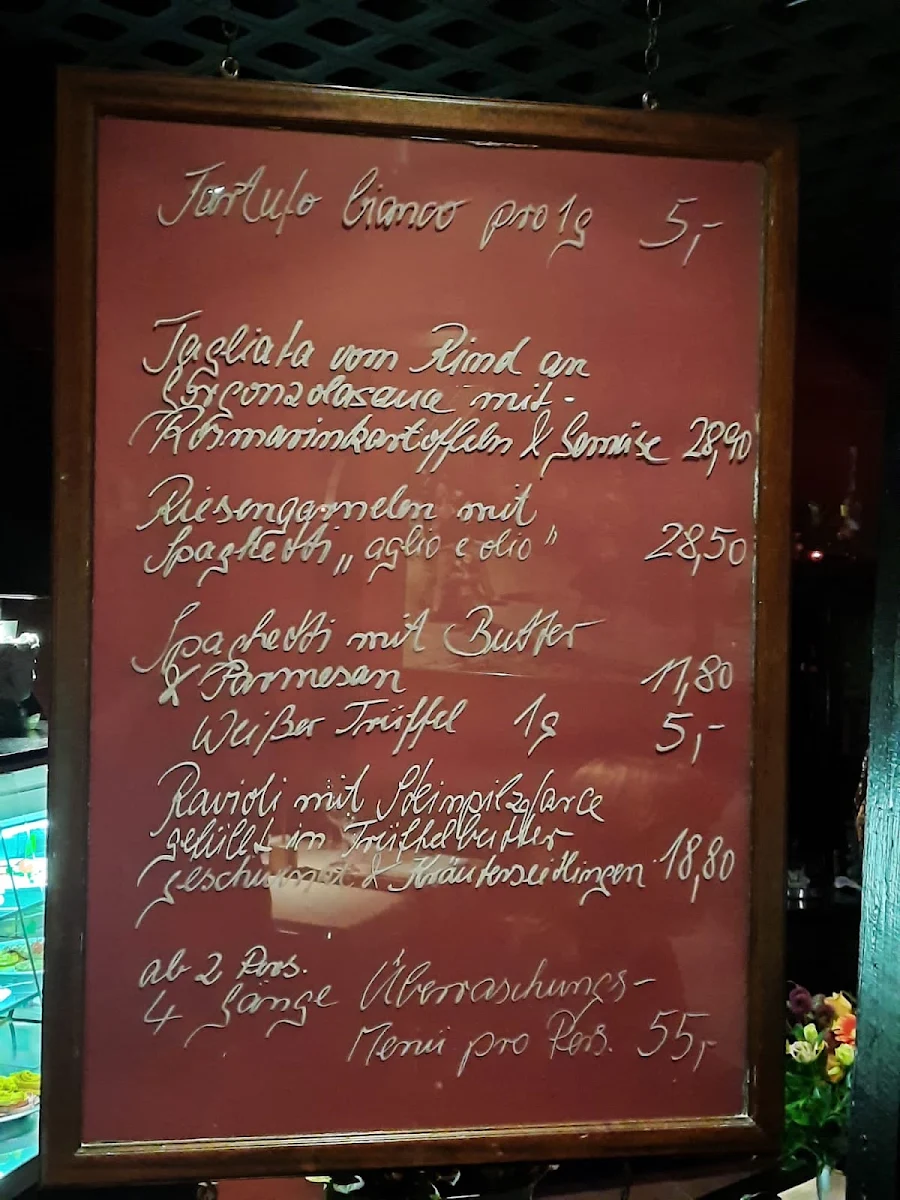 Tartufo bianco pro 1g 5,-
Tagliata vom Rind an
Gorgonzolasauce mit
Rosmarinkartoffeln & Gemüse 28,90
Riesengarnelen mit
Spaghetti „aglio e olio" 28,50
Spaghetti mit Butter
& Parmesan 11,80
Weißer Trüffel 1g 5,-
Ravioli mit Steinpilzfarce
gefüllt in Trüffelbutter
& Kräuterseitlingen 18,80
ab 2 Pers.
4 Gänge Überraschungs-
Menü pro Pers. 55,-